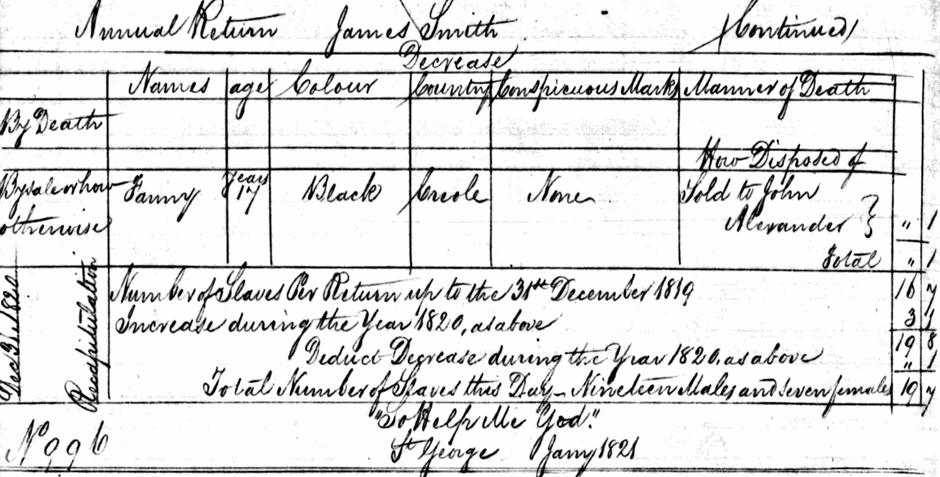 Annual Return James Smith (Continued)
Decrease
Names age Colour Country Conspicuous Marks Manner of Death
By Death
How Disposed of
By sale or how otherwise Fanny Years 17 Black Creole None Sold to John Alexander } " 1
Total " 1
Dec 31st 1820
Recapitulation
Number of Slaves Per Return up to the 31st December 1819 16 7
Increase during the Year 1820, as above 3 1
19 8
Deduct Decrease during the Year 1820, as above " 1
Total Number of Slaves this Day - Nineteen Males and seven females 19 7
"So Help Me God."
No 996 St George Jany 1821